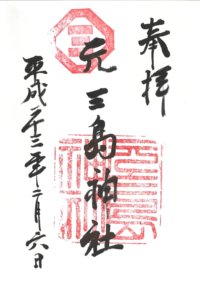 奉拝
元三島神社
平成二十三年二月六日